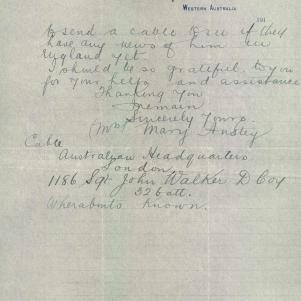 WESTERN AUSTRALIA
191
to send a cable & see if they
have any news of him in
England yet
I should be so grateful to you
for your help and assistance
Thanking You
I remain
Sincerely Yours
(Mrs) Mary Anstey
Cable
Australian Headquarters
London
1186 Sgt John Walker D Coy
32 batt.
Wherabouts Known.